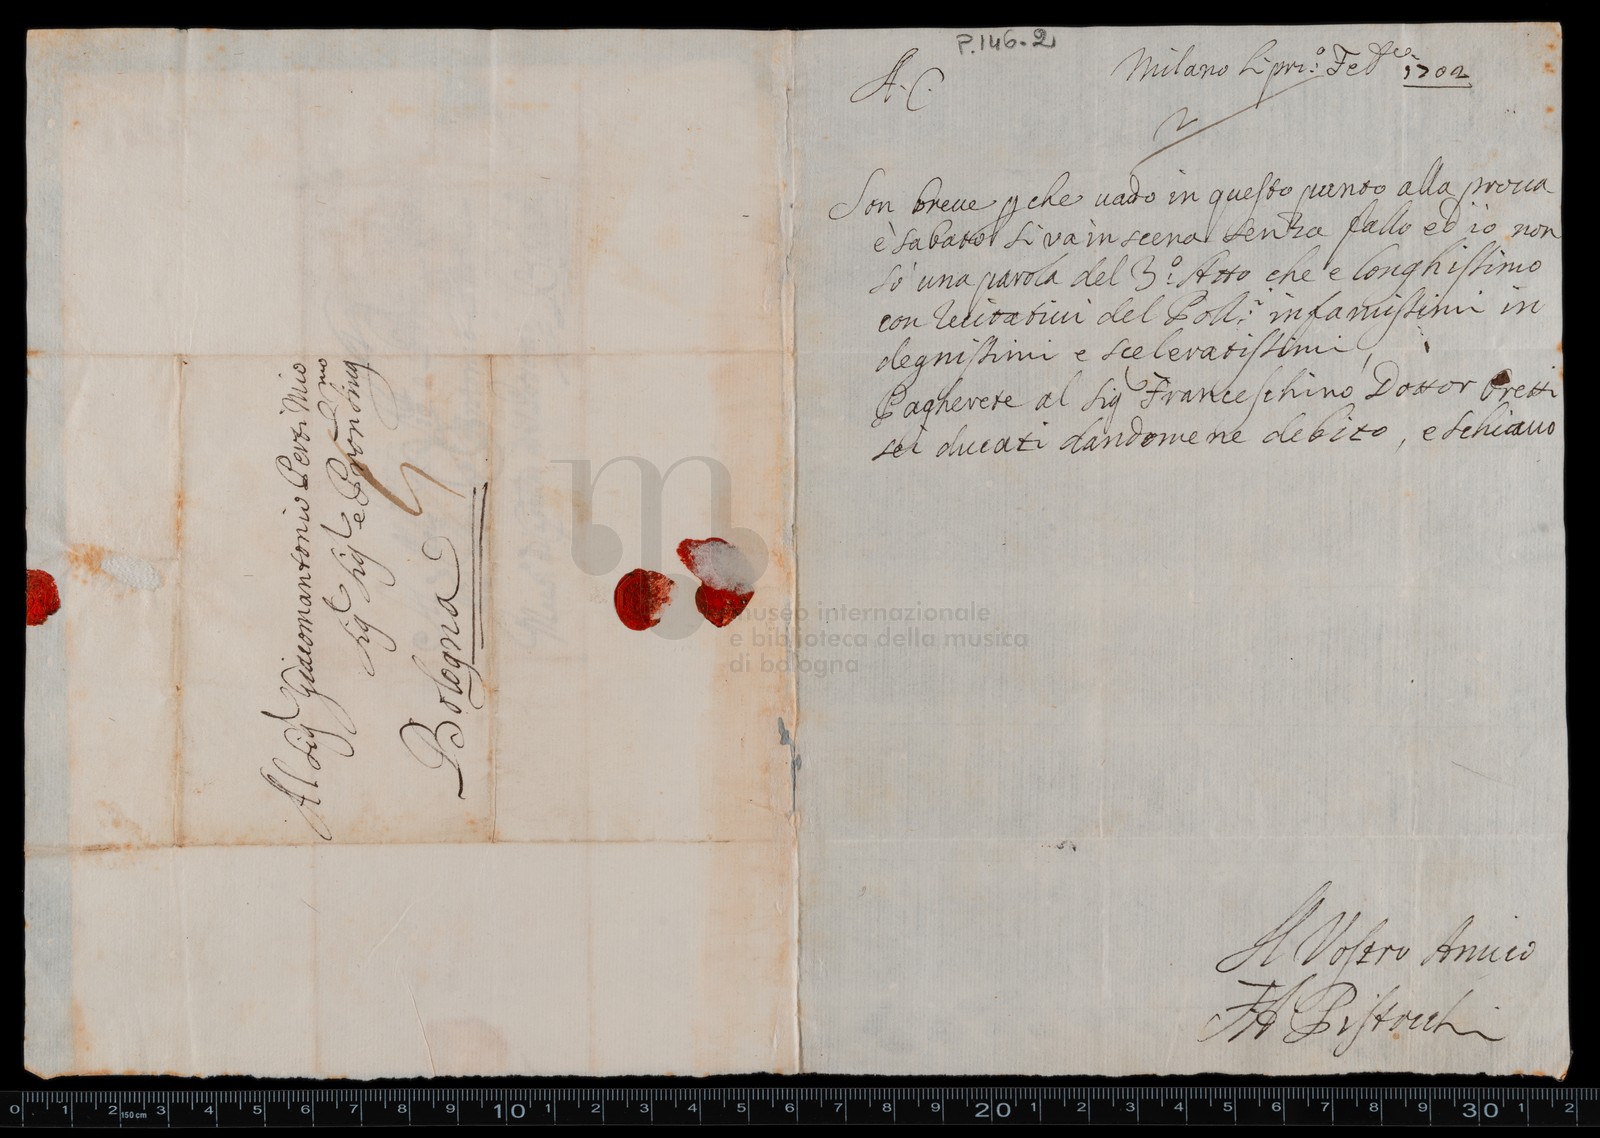 Al Sig.r Giacomantonio Perti Mio
Sig.r Sig.r e Pron Sing.mo
Bologna
P.146.2
A. C.
Milano li pri:o Feb.ro 1702
Son breue p che uado in questo punto alla proua
è sabato si và in scena senza fallo ed io non
sò una parola del 3.o Atto che e longhissimo
con Recitatiui del Poll:i infamissimi in
degnissimi e sceleratissimi,
Pagherete al Sig Franceschino Dottor Oretti
sei ducati dandomene debito, e schiauo
Il Vostro Amico
FA Pistocchi
museo internazionale
e biblioteca della musica
di bologna
0 1 2 150 cm 3 4 5 6 7 8 9 10 1 2 3 4 5 6 7 8 9 20 1 2 3 4 5 6 7 8 9 30 1 2